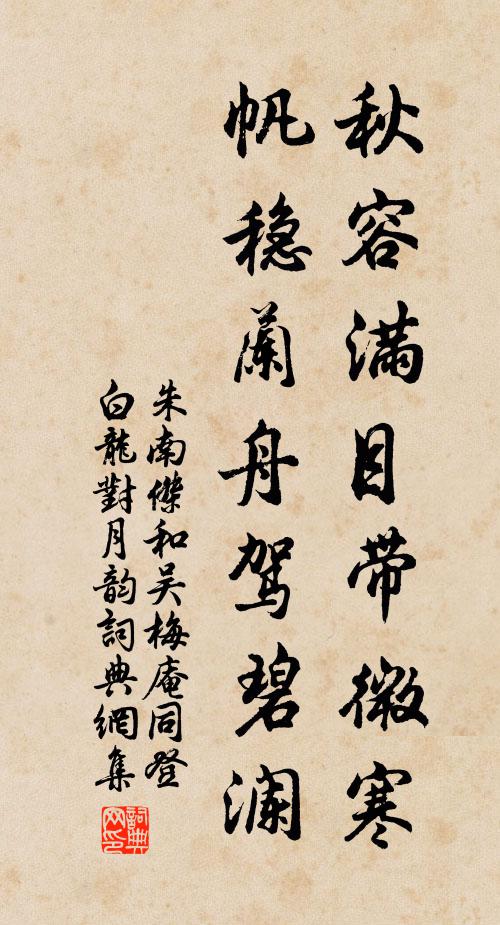 秋容满目带微寒
帆稳蘭舟驾碧澜
朱南傑和吴梅庵同登
白龍對月韵詞典網集
詞典
网印